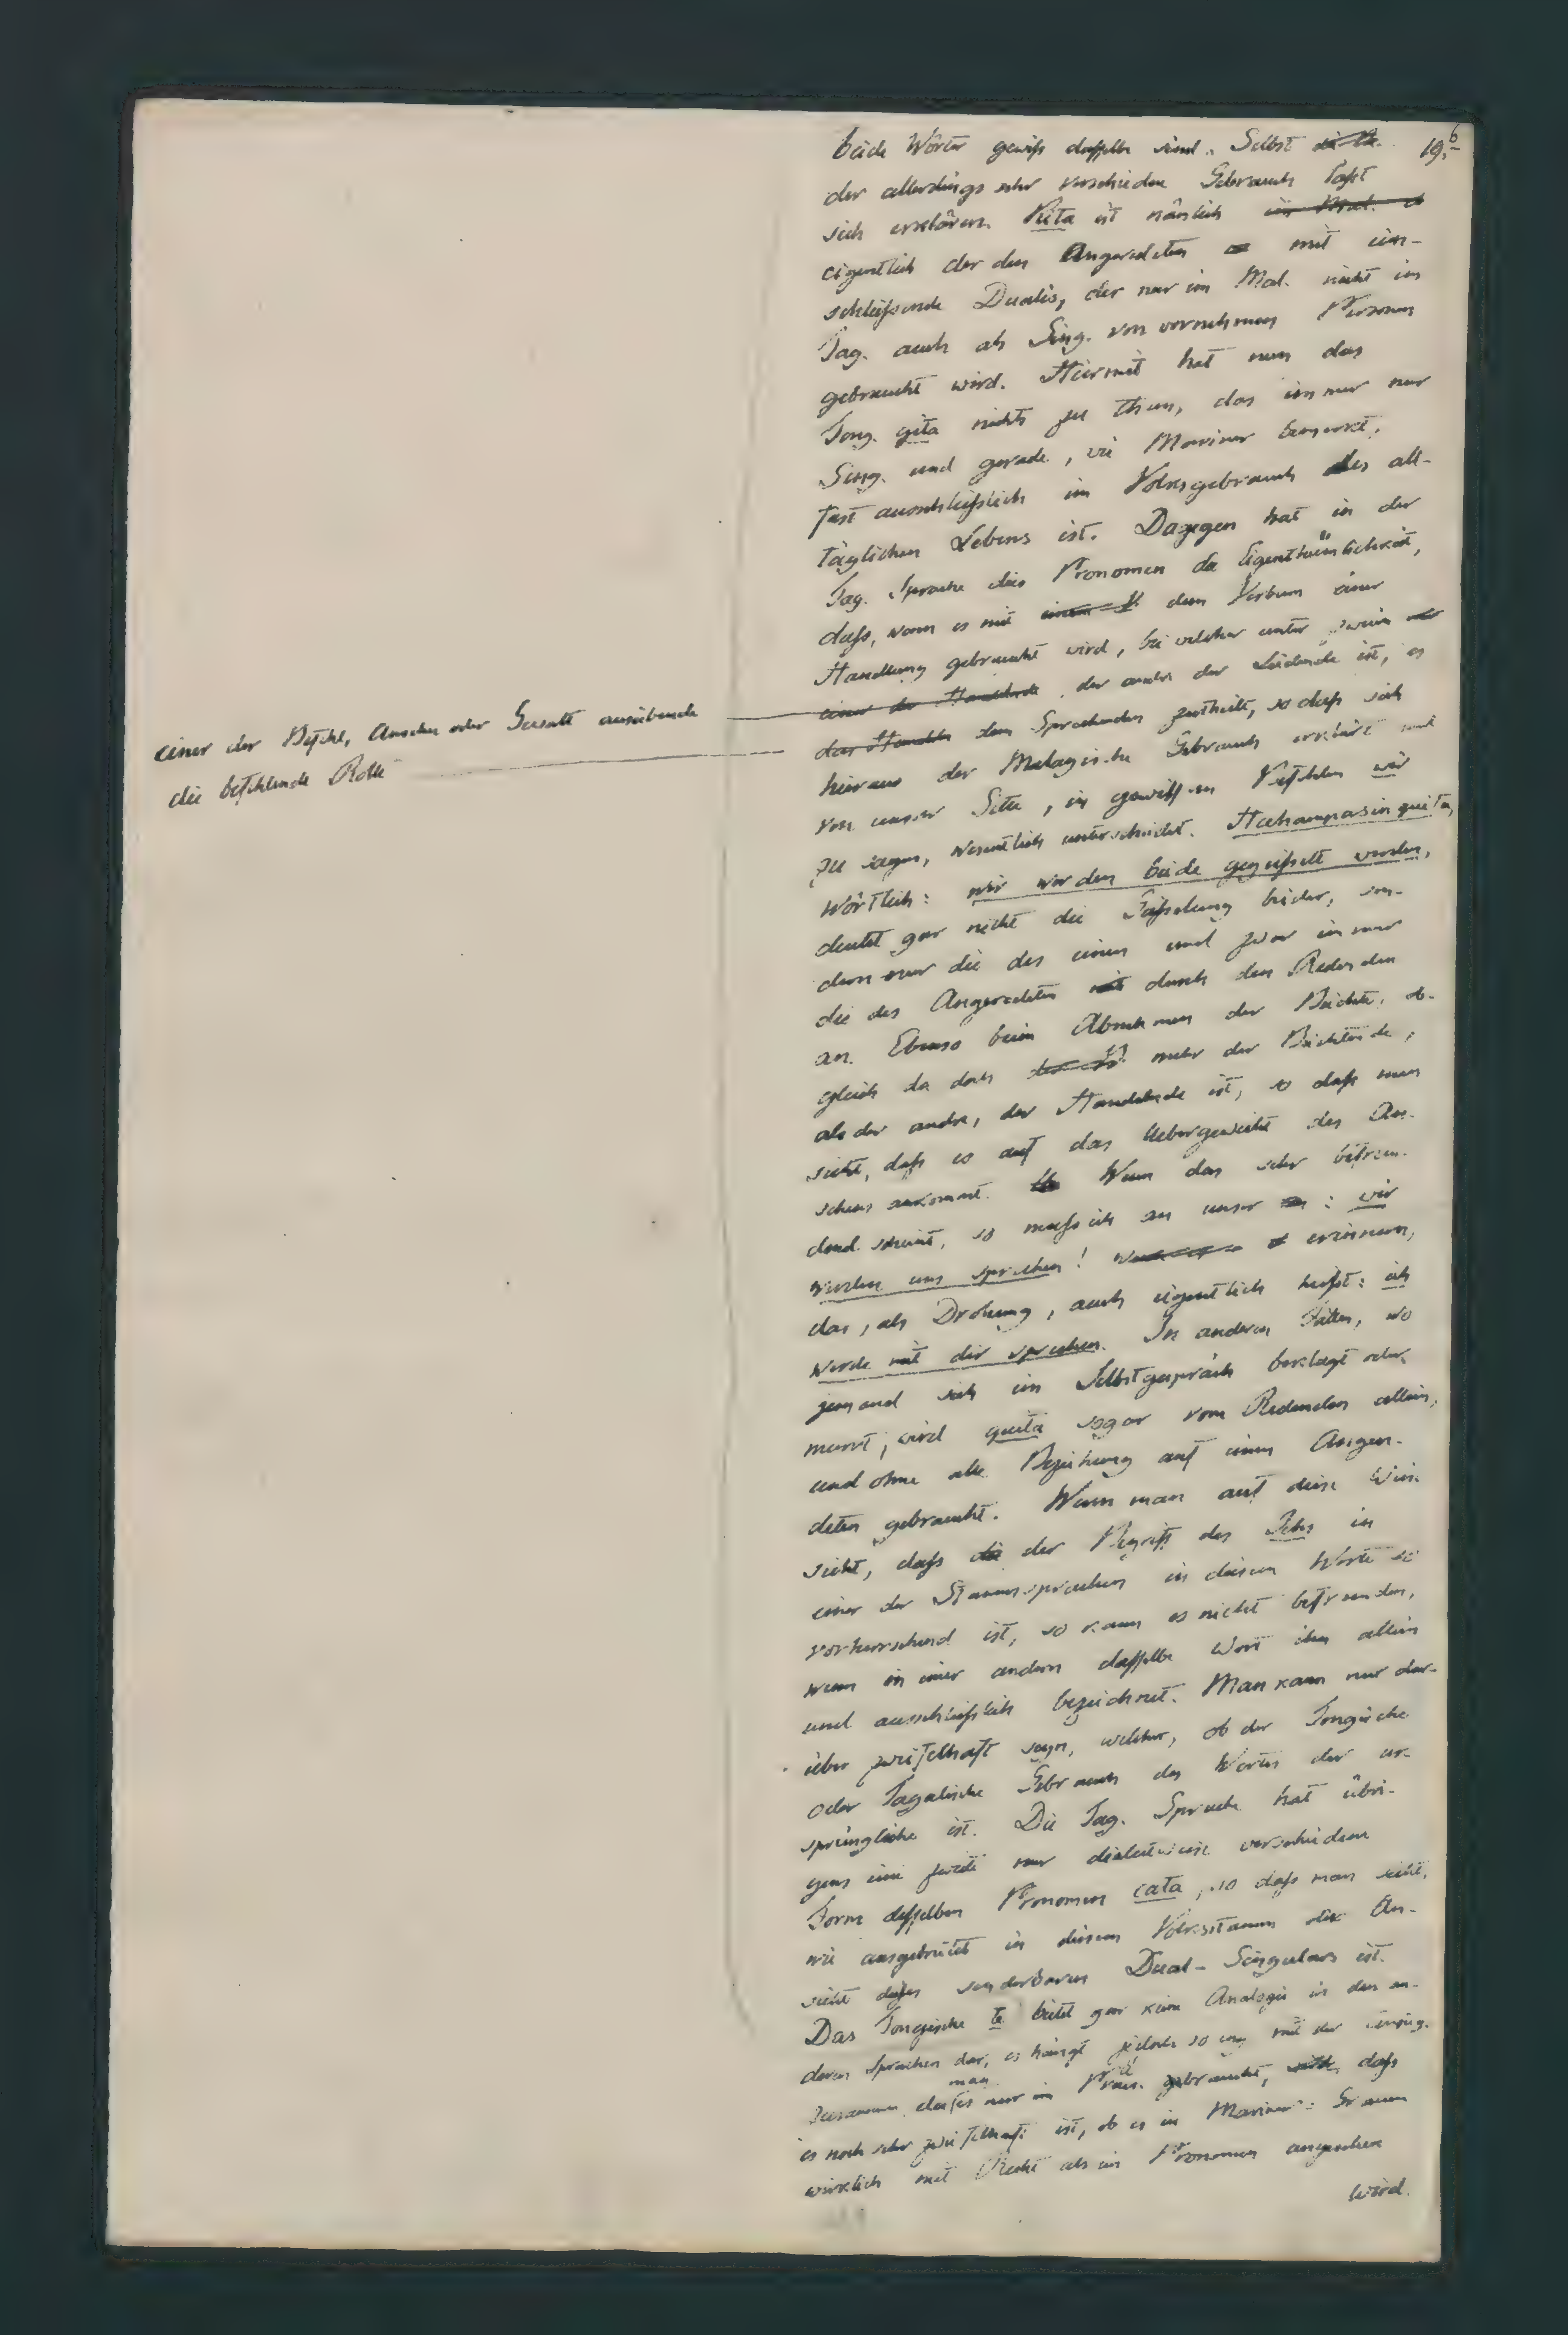 19. 6
beide Wörter gewiß dasselbe sind. Selbst
der allerdings sehr verschiedne Gebrauch läßt
sich erklären. Kita ist nämlich im Mal.
eigentlich der den Angeredeten mit ein-
schließende Dualis, der nur im Mal. nicht im
Tag. auch als Sing. von vornehmen Personen
gebraucht wird. Hiermit hat nun das
Tong. gita nichts zu thun, das immer nur
Sing. und gerade, wie Mariner bemerkt,
fast ausschließlich im Volksgebrauch des all-
täglichen Lebens ist. Dagegen hat in der
Tag. Sprache dies Pronomen die Eigenthümlichkeit,
daß, wenn es mit einem V. dem Verbum einer
Handlung gebraucht wird, bei welcher unter zweien
einer der Handelnde, der andre der Leidende ist, es
einer der Befehl, Ansehen oder Gewalt ausübende
das Handeln dem Sprechenden zutheilt, so daß sich
die befehlende Rolle
hieraus der Malayische Gebrauch erklärt und
von unsrer Sitte, in gewissen Befehlen wir
zu sagen, wesentlich unterscheidet. Hahampasin quita,
wörtlich: wir werden beide gegeißelt werden,
deutet gar nicht die Geißelung beider, son-
dern nur die des einen und zwar immer
die des Angeredeten durch den Redenden
an. Ebenso beim Abnehmen der Beichte, ob-
gleich da doch mehr der Beichtende,
als der andre, der Handelnde ist, so daß man
sieht, daß es auf das Uebergewicht des An-
sehens ankommt. Wem das sehr befrem-
dend scheint, so muß ich an unser : wir
werden uns sprechen! erinnern,
das, als Drohung, auch eigentlich heißt: ich
werde mit dir sprechen. In anderen Fällen, wo
jemand sich im Selbstgespräch beklagt oder
murrt, wird quita sogar vom Redenden allein,
und ohne alle Beziehung auf einen Angere-
deten gebraucht. Wenn man auf diese Weise
sieht, daß die der Begriff des Ichs in
einer der Stammsprachen in diesem Worte so
vorherrschend ist, so kann es nicht befremden,
wenn in einer andern dasselbe Wort ihn allein
und ausschließlich bezeichnet. Man kann nur dar-
über zweifelhaft seyn, welcher, ob der Tongische
oder Tagalische Gebrauch des Wortes der ur-
sprüngliche ist. Die Tag. Sprache hat übri-
gens eine zweite nur dialectweise verschiedene
Form desselben Pronomen cata, so daß man sieht,
wie ausgebreitet in diesem Volksstamm die An-
sicht dieses sonderbaren Dual-Singulars ist.
Das Tongische te bietet gar keine Analogie in den an-
deren Sprachen dar, es hängt jedoch so eng mit der
zusammen, daß man es nur im Präs. gebraucht, daß
es noch sehr zweifelhaft ist, ob es in Mariner's Gramm
wirklich mit Recht als ein Pronomen angesehen
wird.